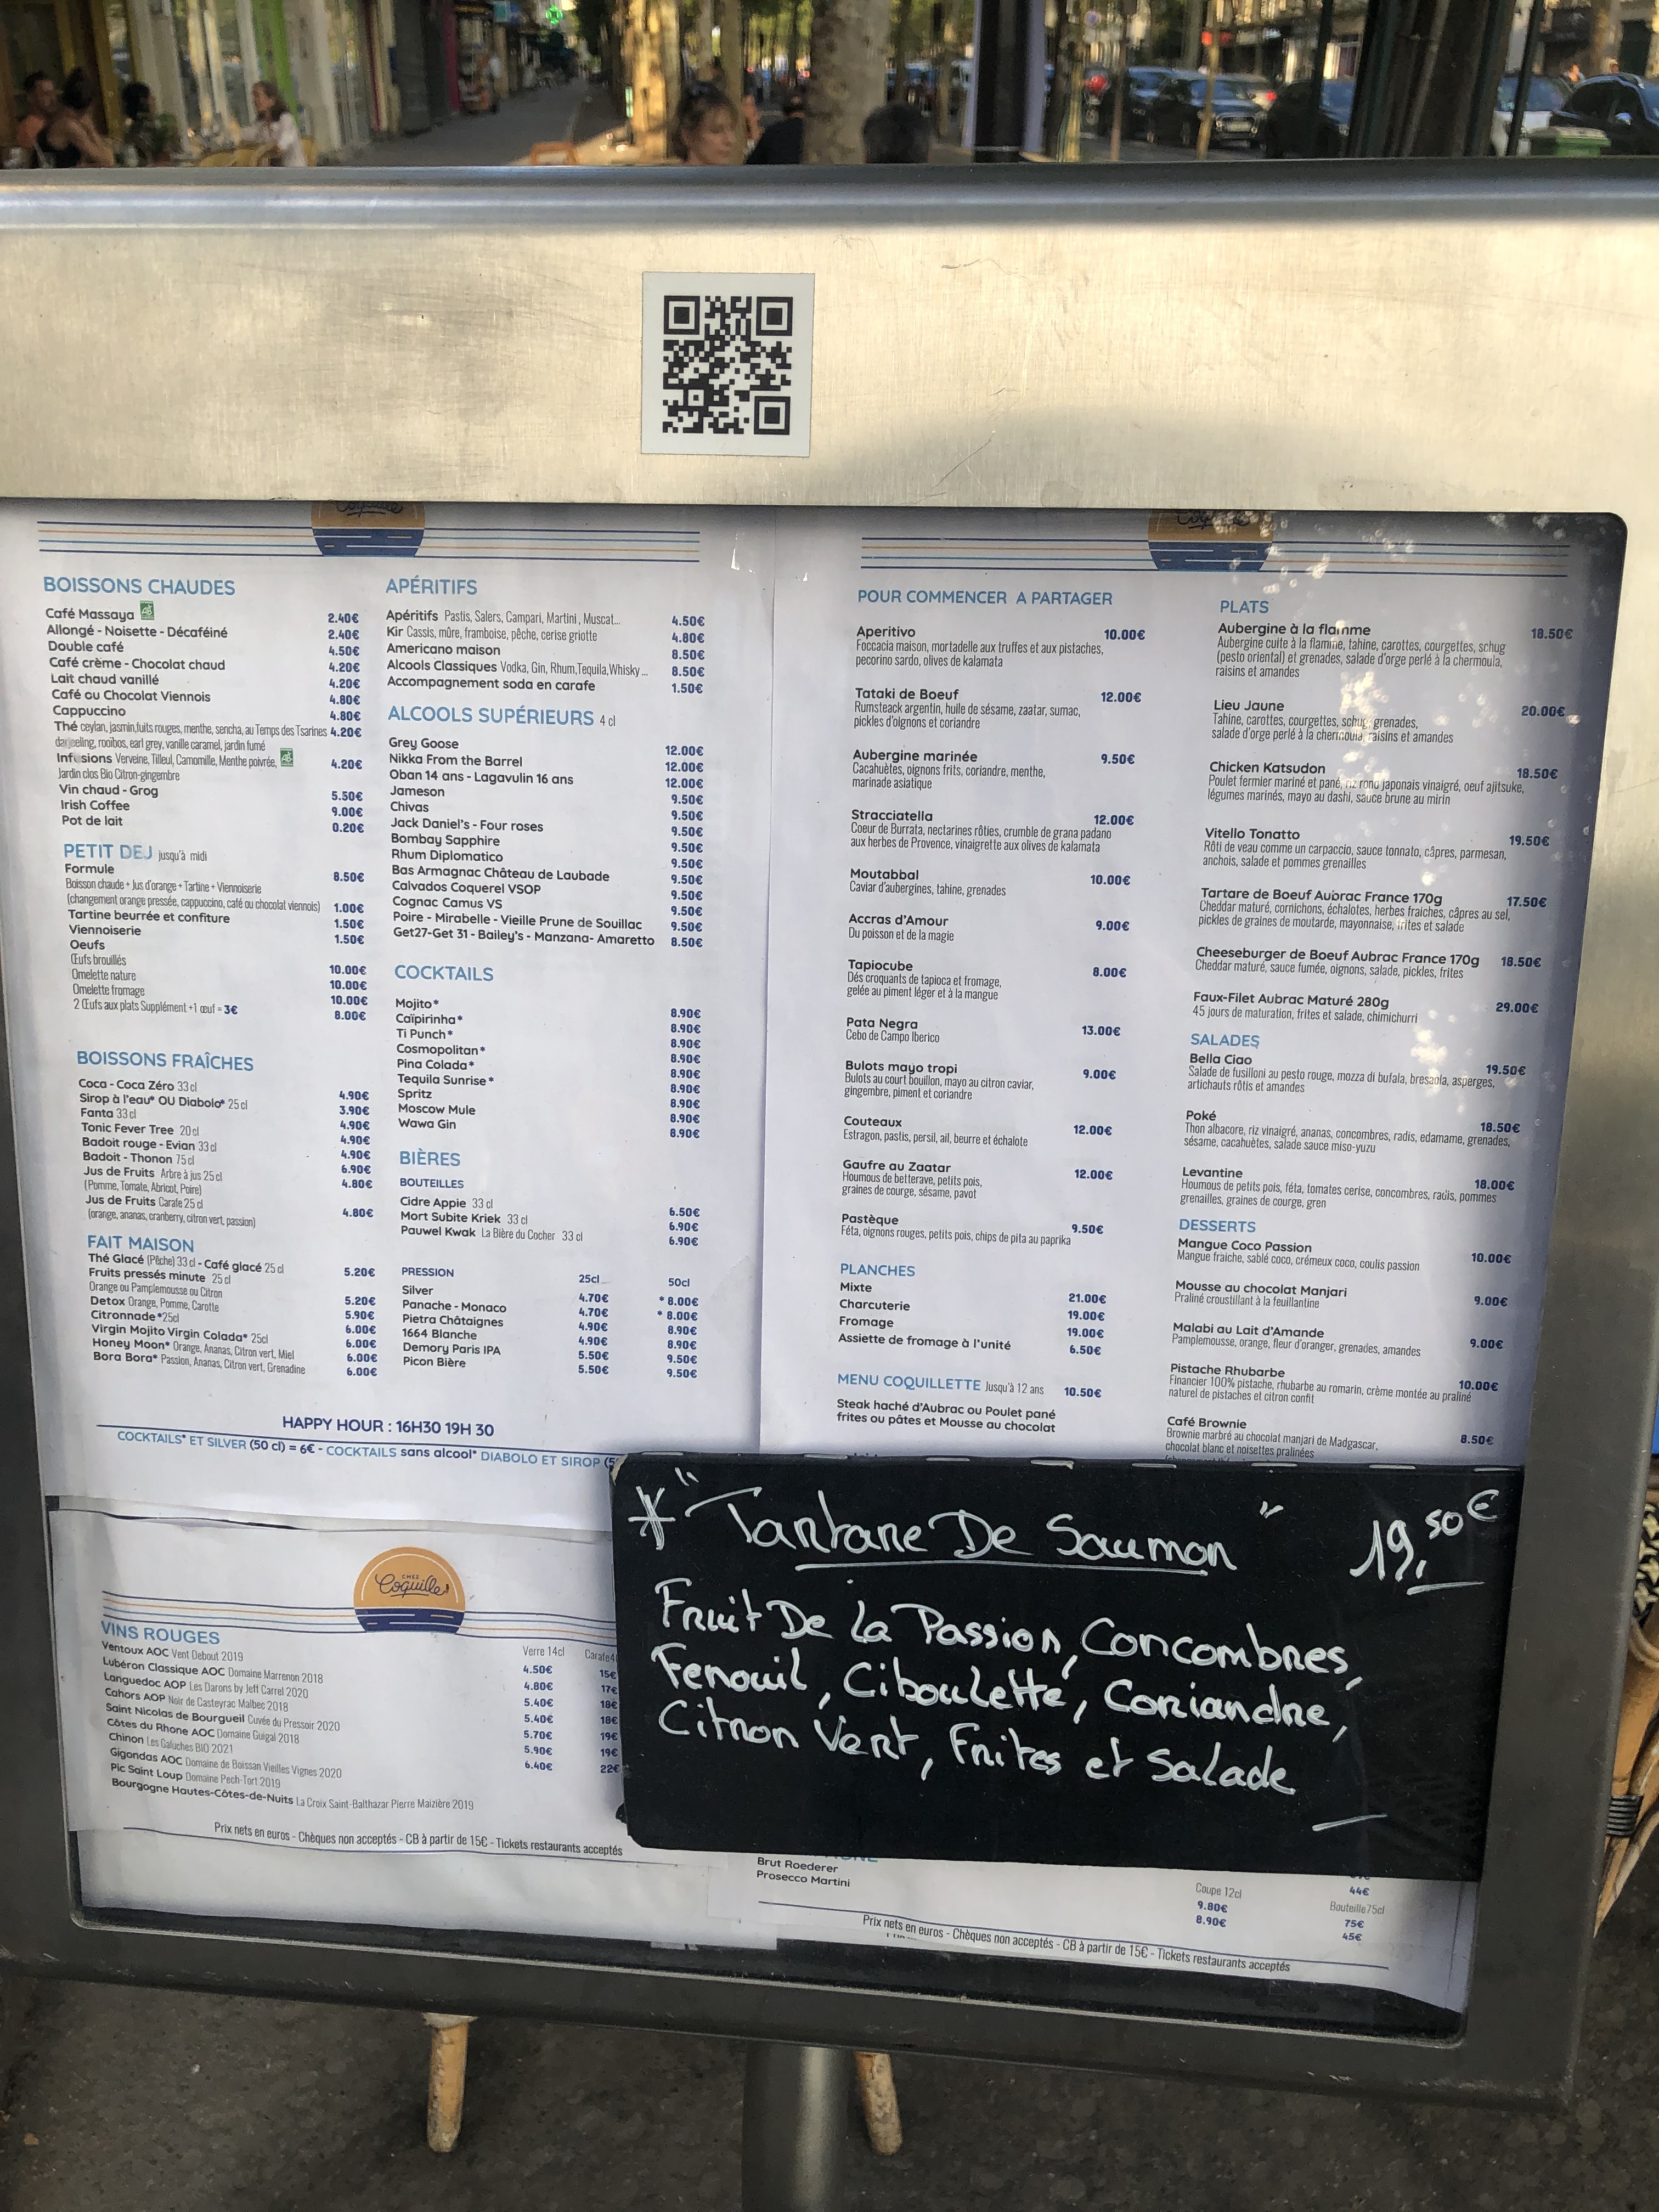 Coquille
BOISSONS CHAUDES
Café Massaya AB 2.40€
Allongé - Noisette - Décaféiné 2.40€
Double café 4.50€
Café crème - Chocolat chaud 4.20€
Lait chaud vanillé 4.20€
Café ou Chocolat Viennois 4.80€
Cappuccino 4.80€
Thé ceylan, jasmin,fuits rouges, menthe, sencha, au Temps des Tsarines 4.20€
darjeeling, rooibos, earl grey, vanille caramel, jardin fumé
Infusions Verveine, Tilleul, Camomille, Menthe poivrée, AB 4.20€
Jardin clos Bio Citron-gingembre
Vin chaud - Grog 5.50€
Irish Coffee 9.00€
Pot de lait 0.20€
PETIT DEJ jusqu'à midi
Formule 8.50€
Boisson chaude + Jus d'orange + Tartine + Viennoiserie
(changement orange pressée, cappuccino, café ou chocolat viennois) 1.00€
Tartine beurrée et confiture 1.50€
Viennoiserie 1.50€
Oeufs
Œufs brouillés 10.00€
Omelette nature 10.00€
Omelette fromage 10.00€
2 Œufs aux plats Supplément +1 œuf = 3€ 8.00€
BOISSONS FRAÎCHES
Coca - Coca Zéro 33 cl 4.90€
Sirop à l'eau* OU Diabolo* 25 cl 3.90€
Fanta 33 cl 4.90€
Tonic Fever Tree 20 cl 4.90€
Badoit rouge - Evian 33 cl 4.90€
Badoit - Thonon 75 cl 6.90€
Jus de Fruits Arbre à jus 25 cl 4.80€
(Pomme, Tomate, Abricot, Poire)
Jus de Fruits Carafe 25 cl 4.80€
(orange, ananas, cranberry, citron vert, passion)
FAIT MAISON
Thé Glacé (Pêche) 33 cl - Café glacé 25 cl 5.20€
Fruits pressés minute 25 cl
Orange ou Pamplemousse ou Citron 5.20€
Detox Orange, Pomme, Carotte 5.90€
Citronnade *25cl 6.00€
Virgin Mojito Virgin Colada* 25cl 6.00€
Honey Moon* Orange, Ananas, Citron vert, Miel 6.00€
Bora Bora* Passion, Ananas, Citron vert, Grenadine
APÉRITIFS
Apéritifs Pastis, Salers, Campari, Martini , Muscat... 4.50€
Kir Cassis, mûre, framboise, pêche, cerise griotte 4.80€
Americano maison 8.50€
Alcools Classiques Vodka, Gin, Rhum,Tequila,Whisky ... 8.50€
Accompagnement soda en carafe 1.50€
ALCOOLS SUPÉRIEURS 4 cl
Grey Goose 12.00€
Nikka From the Barrel 12.00€
Oban 14 ans - Lagavulin 16 ans 12.00€
Jameson 9.50€
Chivas 9.50€
Jack Daniel's - Four roses 9.50€
Bombay Sapphire 9.50€
Rhum Diplomatico 9.50€
Bas Armagnac Château de Laubade 9.50€
Calvados Coquerel VSOP 9.50€
Cognac Camus VS 9.50€
Poire - Mirabelle - Vieille Prune de Souillac 9.50€
Get27-Get 31 - Bailey's - Manzana- Amaretto 8.50€
COCKTAILS
Mojito* 8.90€
Caïpirinha* 8.90€
Ti Punch* 8.90€
Cosmopolitan* 8.90€
Pina Colada* 8.90€
Tequila Sunrise* 8.90€
Spritz 8.90€
Moscow Mule 8.90€
Wawa Gin 8.90€
BIÈRES
BOUTEILLES
Cidre Appie 33 cl 6.50€
Mort Subite Kriek 33 cl 6.90€
Pauwel Kwak La Bière du Cocher 33 cl 6.90€
PRESSION 25cl 50cl
Silver 4.70€ * 8.00€
Panache - Monaco 4.70€ * 8.00€
Pietra Châtaignes 4.90€ 8.90€
1664 Blanche 4.90€ 8.90€
Demory Paris IPA 5.50€ 9.50€
Picon Bière 5.50€ 9.50€
HAPPY HOUR : 16H30 19H 30
COCKTAILS* ET SILVER (50 cl) = 6€ - COCKTAILS sans alcool* DIABOLO ET SIROP
Coquille
POUR COMMENCER A PARTAGER
Aperitivo 10.00€
Foccacia maison, mortadelle aux truffes et aux pistaches,
pecorino sardo, olives de kalamata
Tataki de Boeuf 12.00€
Rumsteack argentin, huile de sésame, zaatar, sumac,
pickles d'oignons et coriandre
Aubergine marinée 9.50€
Cacahuètes, oignons frits, coriandre, menthe,
marinade asiatique
Stracciatella 12.00€
Coeur de Burrata, nectarines rôties, crumble de grana padano
aux herbes de Provence, vinaigrette aux olives de kalamata
Moutabbal 10.00€
Caviar d'aubergines, tahine, grenades
Accras d'Amour 9.00€
Du poisson et de la magie
Tapiocube 8.00€
Dés croquants de tapioca et fromage,
gelée au piment léger et à la mangue
Pata Negra 13.00€
Cebo de Campo Iberico
Bulots mayo tropi 9.00€
Bulots au court bouillon, mayo au citron caviar,
gingembre, piment et coriandre
Couteaux 12.00€
Estragon, pastis, persil, ail, beurre et échalote
Gaufre au Zaatar 12.00€
Houmous de betterave, petits pois,
graines de courge, sésame, pavot
Pastèque 9.50€
Féta, oignons rouges, petits pois, chips de pita au paprika
PLANCHES
Mixte 21.00€
Charcuterie 19.00€
Fromage 19.00€
Assiette de fromage à l'unité 6.50€
MENU COQUILLETTE Jusqu'à 12 ans 10.50€
Steak haché d'Aubrac ou Poulet pané
frites ou pâtes et Mousse au chocolat
PLATS
Aubergine à la flamme 18.50€
Aubergine cuite à la flamme, tahine, carottes, courgettes, schug
(pesto oriental) et grenades, salade d'orge perlé à la chermoula,
raisins et amandes
Lieu Jaune 20.00€
Tahine, carottes, courgettes, schug, grenades,
salade d'orge perlé à la chermoula, raisins et amandes
Chicken Katsudon 18.50€
Poulet fermier mariné et pané, riz rond japonais vinaigré, oeuf ajitsuke,
légumes marinés, mayo au dashi, sauce brune au mirin
Vitello Tonatto 19.50€
Rôti de veau comme un carpaccio, sauce tonnato, câpres, parmesan,
anchois, salade et pommes grenailles
Tartare de Boeuf Aubrac France 170g 17.50€
Cheddar maturé, cornichons, échalotes, herbes fraiches, câpres au sel,
pickles de graines de moutarde, mayonnaise, frites et salade
Cheeseburger de Boeuf Aubrac France 170g 18.50€
Cheddar maturé, sauce fumée, oignons, salade, pickles, frites
Faux-Filet Aubrac Maturé 280g 29.00€
45 jours de maturation, frites et salade, chimichurri
SALADES
Bella Ciao 19.50€
Salade de fusilloni au pesto rouge, mozza di bufala, bresaola, asperges,
artichauts rôtis et amandes
Poké 18.50€
Thon albacore, riz vinaigré, ananas, concombres, radis, edamame, grenades,
sésame, cacahuètes, salade sauce miso-yuzu
Levantine 18.00€
Houmous de petits pois, féta, tomates cerise, concombres, radis, pommes
grenailles, graines de courge, gren
DESSERTS
Mangue Coco Passion 10.00€
Mangue fraiche, sablé coco, crémeux coco, coulis passion
Mousse au chocolat Manjari 9.00€
Praliné croustillant à la feuillantine
Malabi au Lait d'Amande 9.00€
Pamplemousse, orange, fleur d'oranger, grenades, amandes
Pistache Rhubarbe 10.00€
Financier 100% pistache, rhubarbe au romarin, crème montée au praliné
naturel de pistaches et citron confit
Café Brownie 8.50€
Brownie marbré au chocolat manjari de Madagascar,
chocolat blanc et noisettes pralinées
* "Tartare De Saumon" 19,50€
Fruit De La Passion, Concombres,
Fenouil, Ciboulette, Coriandre,
Citron Vert, Frites et Salade
CHEZ
Coquille
VINS ROUGES Verre 14cl Carafe
Ventoux AOC Vent Debout 2019 4.50€ 15€
Lubéron Classique AOC Domaine Marrenon 2018 4.80€ 17€
Languedoc AOP Les Darons by Jeff Carrel 2020 5.40€ 18€
Cahors AOP Noir de Casteyrac Malbec 2018 5.40€ 18€
Saint Nicolas de Bourgueil Cuvée du Pressoir 2020 5.70€ 19€
Côtes du Rhone AOC Domaine Guigal 2018 5.90€ 19€
Chinon Les Galuches BIO 2021 6.40€ 22€
Gigondas AOC Domaine de Boissan Vieilles Vignes 2020
Pic Saint Loup Domaine Pech-Tort 2019
Bourgogne Hautes-Côtes-de-Nuits La Croix Saint-Balthazar Pierre Maizière 2019
Prix nets en euros - Chèques non acceptés - CB à partir de 15€ - Tickets restaurants acceptés
44€
Coupe 12cl Bouteille75cl
Brut Roederer 9.80€ 75€
Prosecco Martini 8.90€ 45€
Prix nets en euros - Chèques non acceptés - CB à partir de 15€ - Tickets restaurants acceptés